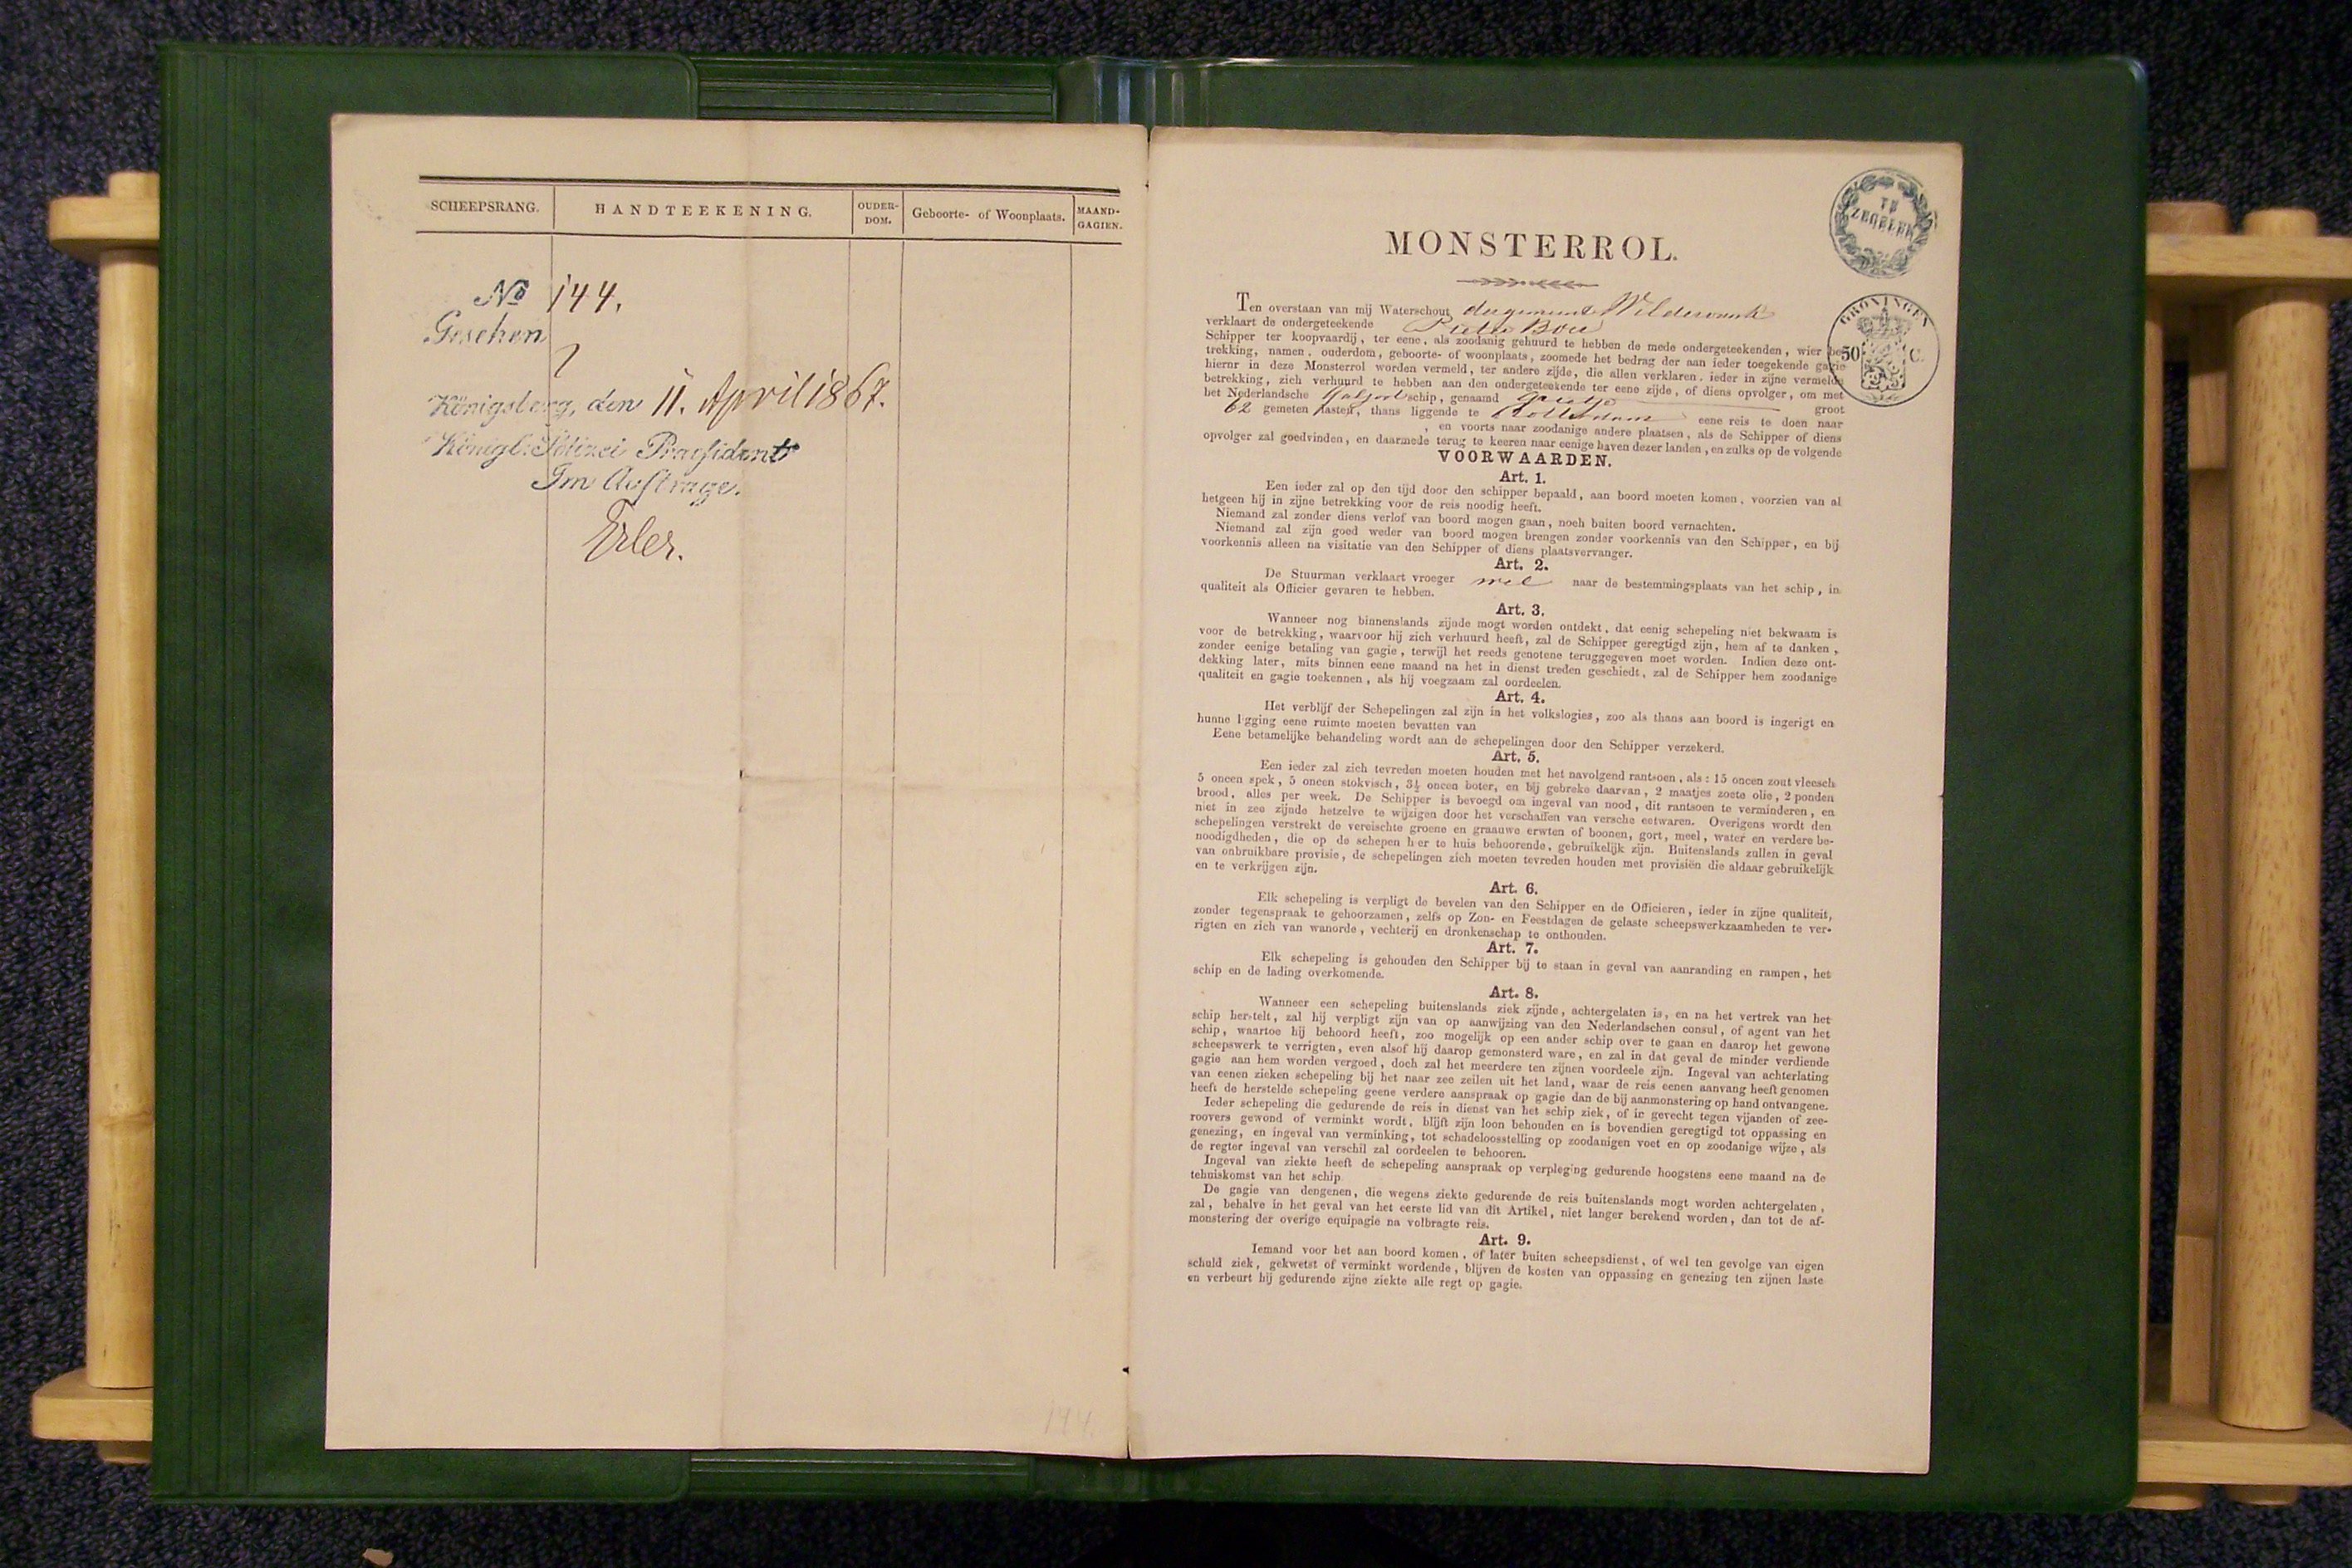 SCHEEPSRANG. HANDTEEKENING. OUDER-DOM. Geboorte- of Woonplaats. MAAND-GAGIEN.
No 144.
Gesehen
Königsberg, den 11. April 1867.
Königl: Polizei Praesident
Im Auftrage.
Erler.
144.
TE
ZEGELEN
GRONINGEN
50 C.
MONSTERROL.
Ten overstaan van mij Waterschout der gemeente Wildervank
verklaart de ondergeteekende Pieter Boer
Schipper ter koopvaardij, ter eene, als zoodanig gehuurd te hebben de mede ondergeteekenden, wier be-
trekking, namen, ouderdom, geboorte- of woonplaats, zoomede het bedrag der aan ieder toegekende gagie
hiernr in deze Monsterrol worden vermeld, ter andere zijde, die allen verklaren, ieder in zijne vermelde
betrekking, zich verhuurd te hebben aan den ondergeteekende ter eene zijde, of diens opvolger, om met
het Nederlandsche schip, genaamd groot
62 gemeten lasten, thans liggende te Rotterdam eene reis te doen naar
, en voorts naar zoodanige andere plaatsen, als de Schipper of diens
opvolger zal goedvinden, en daarmede terug te keeren naar eenige haven dezer landen, en zulks op de volgende
VOORWAARDEN.
Art. 1.
Een ieder zal op den tijd door den schipper bepaald, aan boord moeten komen, voorzien van al
hetgeen hij in zijne betrekking voor de reis noodig heeft.
Niemand zal zonder diens verlof van boord mogen gaan, noch buiten boord vernachten.
Niemand zal zijn goed weder van boord mogen brengen zonder voorkennis van den Schipper, en bij
voorkennis alleen na visitatie van den Schipper of diens plaatsvervanger.
Art. 2.
De Stuurman verklaart vroeger wel naar de bestemmingsplaats van het schip, in
qualiteit als Officier gevaren te hebben.
Art. 3.
Wanneer nog binnenslands zijnde mogt worden ontdekt, dat eenig schepeling niet bekwaam is
voor de betrekking, waarvoor hij zich verhuurd heeft, zal de Schipper geregtigd zijn, hem af te danken,
zonder eenige betaling van gagie, terwijl het reeds genotene teruggegeven moet worden. Indien deze ont-
dekking later, mits binnen eene maand na het in dienst treden geschiedt, zal de Schipper hem zoodanige
qualiteit en gagie toekennen, als hij voegzaam zal oordeelen.
Art. 4.
Het verblijf der Schepelingen zal zijn in het volkslogies, zoo als thans aan boord is ingerigt en
hunne ligging eene ruimte moeten bevatten van
Eene betamelijke behandeling wordt aan de schepelingen door den Schipper verzekerd.
Art. 5.
Een ieder zal zich tevreden moeten houden met het navolgend rantsoen, als: 15 oncen zout vleesch
5 oncen spek, 5 oncen stokvisch, 3½ oncen boter, en bij gebreke daarvan, 2 maatjes zoete olie, 2 ponden
brood, alles per week. De Schipper is bevoegd om ingeval van nood, dit rantsoen te verminderen, en
niet in zee zijnde hetzelve te wijzigen door het verschaffen van versche eetwaren. Overigens wordt den
schepelingen verstrekt de vereischte groene en graauwe erwten of boonen, gort, meel, water en verdere be-
noodigdheden, die op de schepen hier te huis behoorende, gebruikelijk zijn. Buitenslands zullen in geval
van onbruikbare provisie, de schepelingen zich moeten tevreden houden met provisiën die aldaar gebruikelijk
en te verkrijgen zijn.
Art. 6.
Elk schepeling is verpligt de bevelen van den Schipper en de Officieren, ieder in zijne qualiteit,
zonder tegenspraak te gehoorzamen, zelfs op Zon- en Feestdagen de gelaste scheepswerkzaamheden te ver-
rigten en zich van wanorde, vechterij en dronkenschap te onthouden.
Art. 7.
Elk schepeling is gehouden den Schipper bij te staan in geval van aanranding en rampen, het
schip en de lading overkomende.
Art. 8.
Wanneer een schepeling buitenslands ziek zijnde, achtergelaten is, en na het vertrek van het
schip herstelt, zal hij verpligt zijn van op aanwijzing van den Nederlandschen consul, of agent van het
schip, waartoe hij behoord heeft, zoo mogelijk op een ander schip over te gaan en daarop het gewone
scheepswerk te verrigten, even alsof hij daarop gemonsterd ware, en zal in dat geval de minder verdiende
gagie aan hem worden vergoed, doch zal het meerdere ten zijnen voordeele zijn. Ingeval van achterlating
van eenen zieken schepeling bij het naar zee zeilen uit het land, waar de reis eenen aanvang heeft genomen
heeft de herstelde schepeling geene verdere aanspraak op gagie dan de bij aanmonstering op hand ontvangene.
Ieder schepeling die gedurende de reis in dienst van het schip ziek, of in gevecht tegen vijanden of zee-
roovers gewond of verminkt wordt, blijft zijn loon behouden en is bovendien geregtigd tot oppassing en
genezing, en ingeval van verminking, tot schadeloosstelling op zoodanigen voet en op zoodanige wijze, als
de regter ingeval van verschil zal oordeelen te behooren.
Ingeval van ziekte heeft de schepeling aanspraak op verpleging gedurende hoogstens eene maand na de
tehuiskomst van het schip
De gagie van dengenen, die wegens ziekte gedurende de reis buitenslands mogt worden achtergelaten,
zal, behalve in het geval van het eerste lid van dit Artikel, niet langer berekend worden, dan tot de af-
monstering der overige equipagie na volbragte reis.
Art. 9.
Iemand voor het aan boord komen, of later buiten scheepsdienst, of wel ten gevolge van eigen
schuld ziek, gekwetst of verminkt wordende, blijven de kosten van oppassing en genezing ten zijnen laste
en verbeurt hij gedurende zijne ziekte alle regt op gagie.